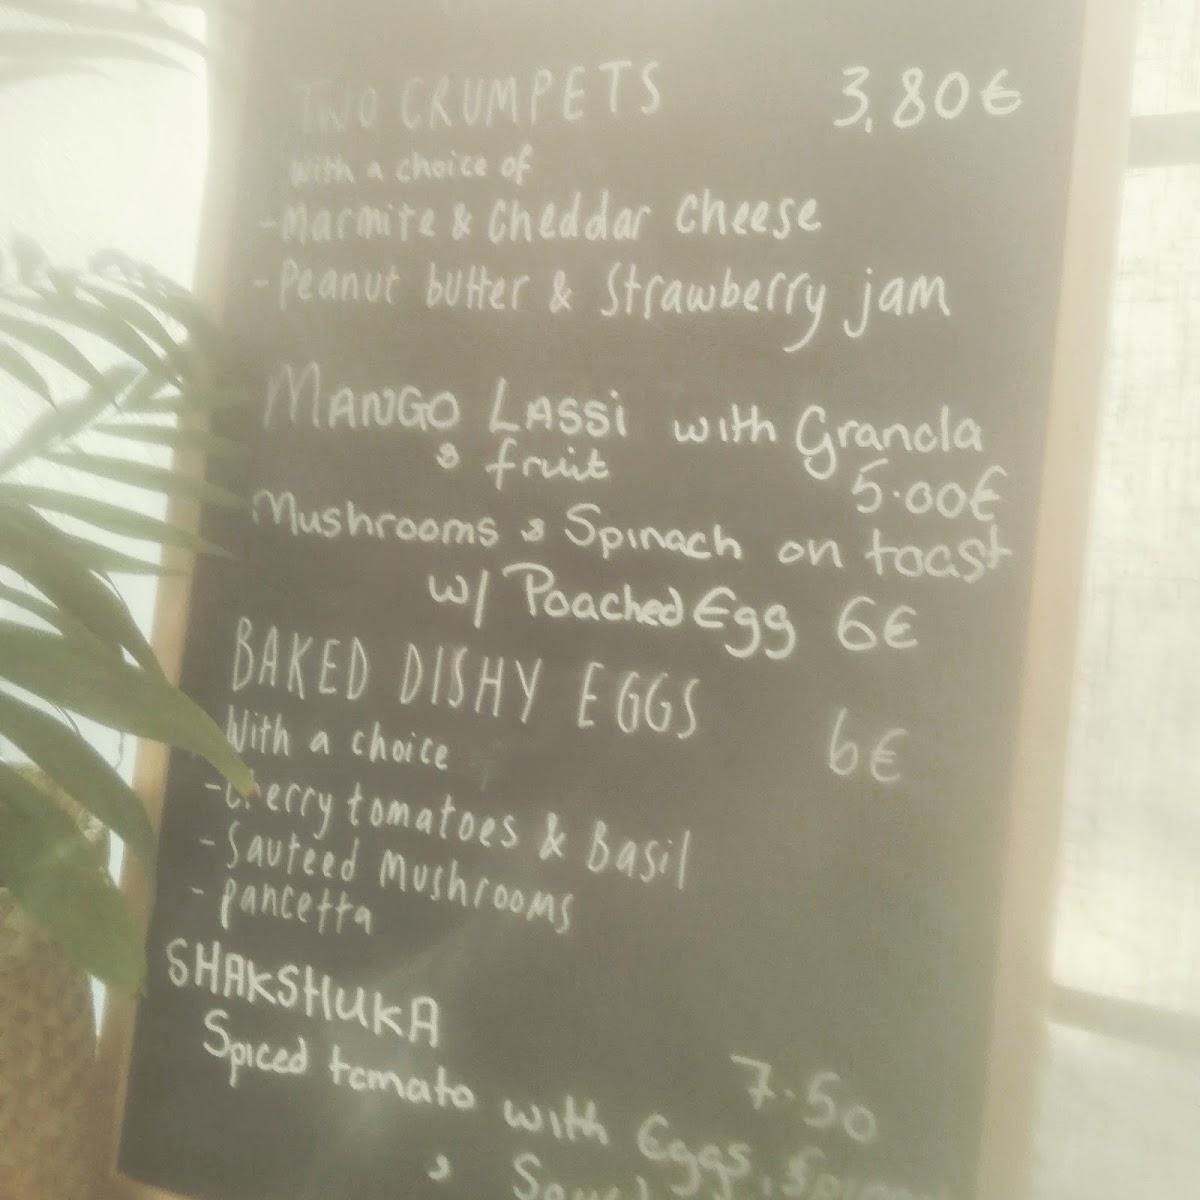 TWO CRUMPETS 3,80€
With a choice of
- Marmite & Cheddar Cheese
- Peanut butter & Strawberry jam
MANGO LASSI with Granola
& fruit 5.00€
Mushrooms & Spinach on toast
w/ Poached Egg 6€
BAKED DISHY EGGS 6€
With a choice
- Cherry tomatoes & Basil
- Sauteed Mushrooms
- Pancetta
SHAKSHUKA 7.50
Spiced tomato with Eggs,
&